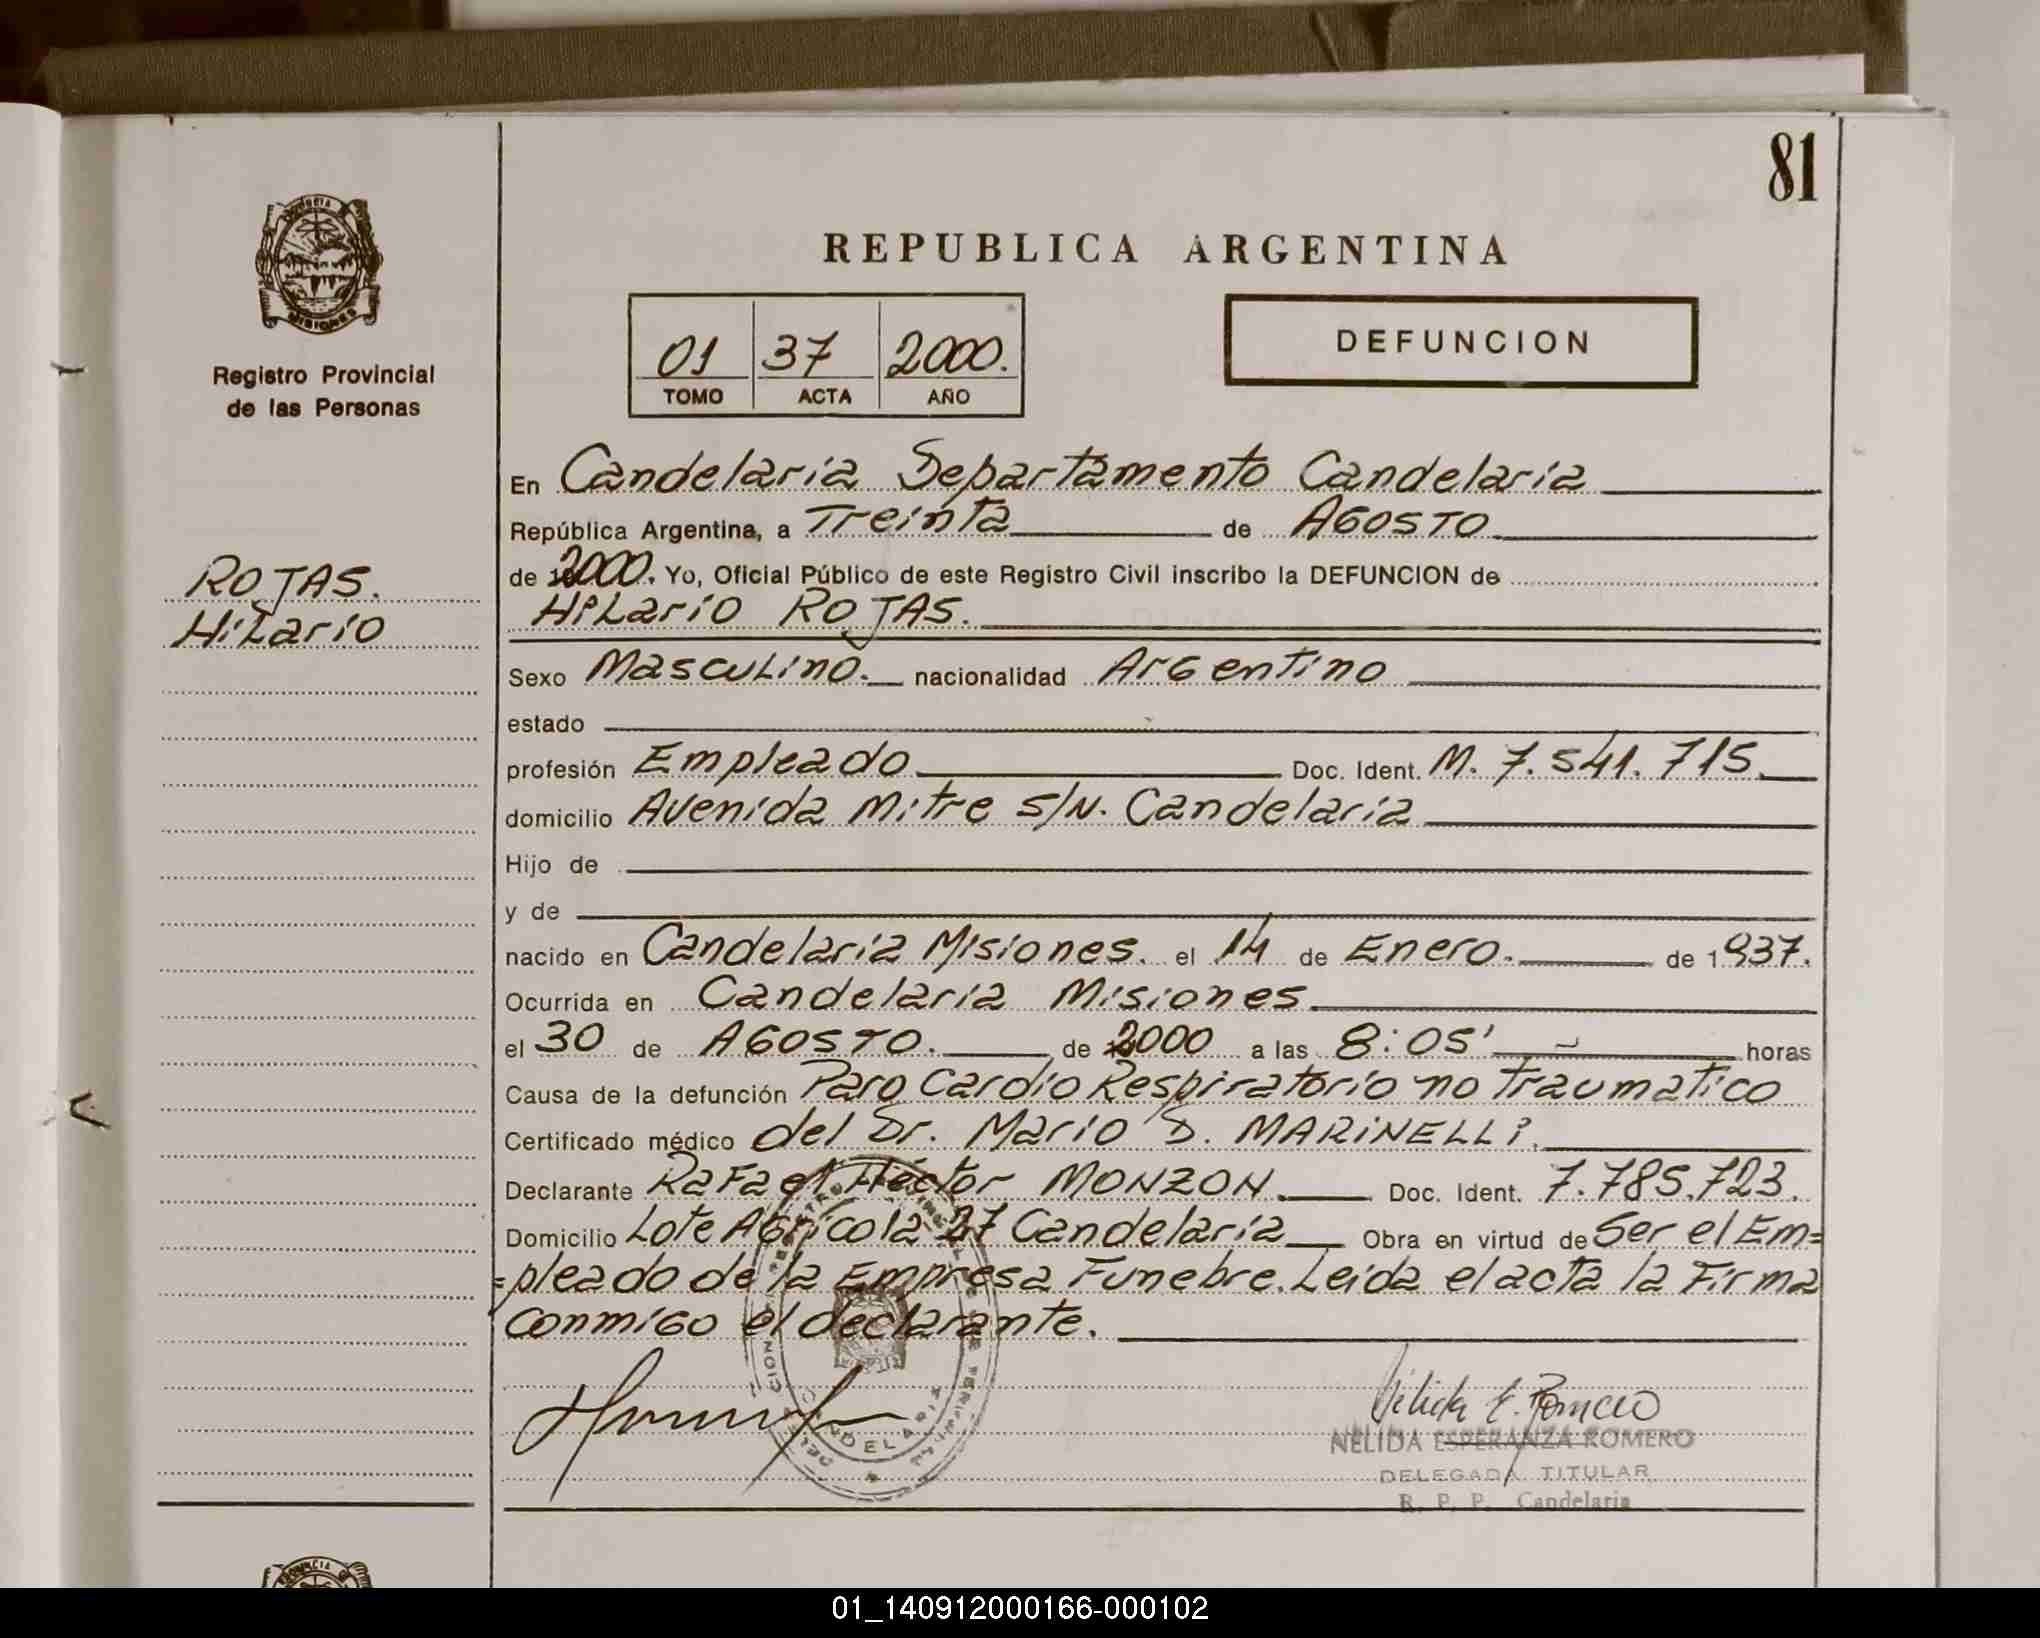 81
REPUBLICA ARGENTINA
MISIONES
Registro Provincial
de las Personas
01 37 2000.
TOMO ACTA AÑO
DEFUNCION
ROJAS.
Hilario
En Candelaria Departamento Candelaria
República Argentina, a Treinta de Agosto
de 2000. Yo, Oficial Público de este Registro Civil inscribo la DEFUNCION de
Hilario ROJAS.
Sexo Masculino. nacionalidad Argentino
estado
profesión Empleado Doc. Ident. M. 7.541.715.
domicilio Avenida Mitre s/N. Candelaria
Hijo de
y de
nacido en Candelaria Misiones. el 14 de Enero. de 1937.
Ocurrida en Candelaria Misiones
el 30 de Agosto. de 2000 a las 8:05' horas
Causa de la defunción Paro Cardio Respiratorio no traumatico
Certificado médico del Dr. Mario D. MARINELLI.
Declarante Rafael Héctor MONZON. Doc. Ident. 7.785.723.
Domicilio Lote Agricola 27 Candelaria Obra en virtud de Ser el Em=
=pleado de la Empresa Funebre. Leida el acta la Firma
conmigo el declarante.
CANDELARIA
Nélida E. Romero
NELIDA ESPERANZA ROMERO
DELEGADA TITULAR
R. P. P. Candelaria
01_140912000166-000102